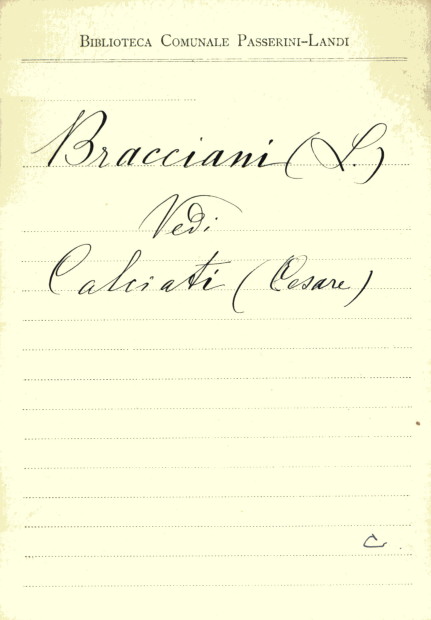 BIBLIOTECA COMUNALE PASSERINI-LANDI
Bracciani (L.)
Vedi
Calciati (Cesare)
C